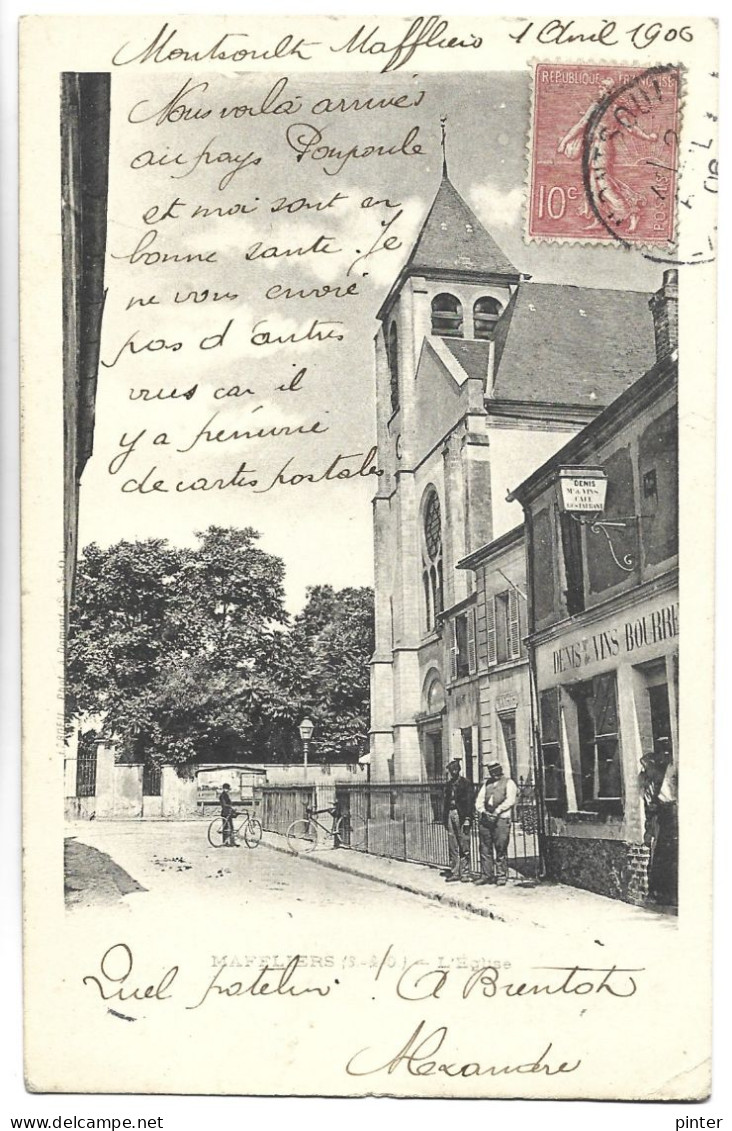 Montsoult Maffliers 1 Avril 1906
Nous voilà arrivés
au pays Poupoule
et moi sont en
bonne santé. Je
ne vous envoie
pas d'autres
vues car il
y a pénurie
de cartes postales
REPUBLIQUE FRANÇAISE
10c
POSTES
DENIS
Md. VINS
CAFÉ
RESTAURANT
DENIS Md DE VINS BOURRE
MAFFLIERS (S.-&-O.) — L'Église
Quel patelin ! A Bientôt
Alexandre
pinter